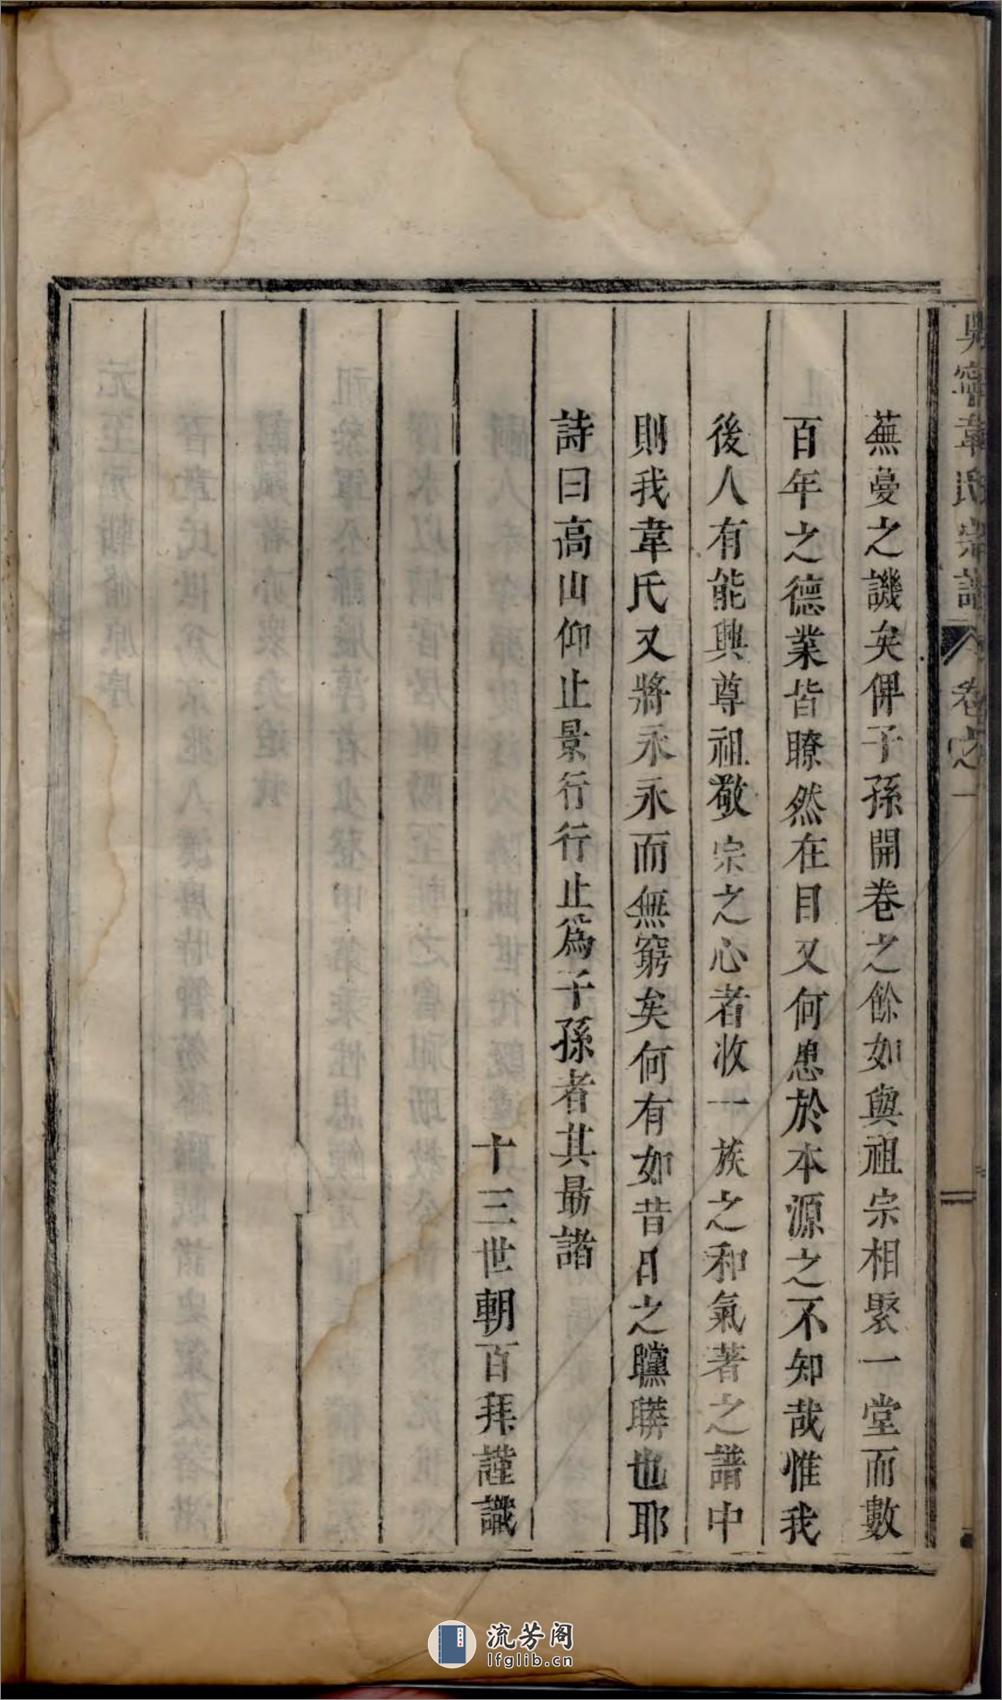 吳寧韋氏宗譜 卷之一
蕪蔓之譏矣俾子孫開卷之餘如與祖宗相聚一堂而數
百年之德業皆瞭然在目又何患於本源之不知哉惟我
後人有能興尊祖敬宗之心者收一族之和氣著之譜中
則我韋氏又將永永而無窮矣何有如昔日之聯也耶
詩曰高山仰止景行行止爲子孫者其勗諸
十三世朝百拜謹識
流芳阁
lfglib.cn